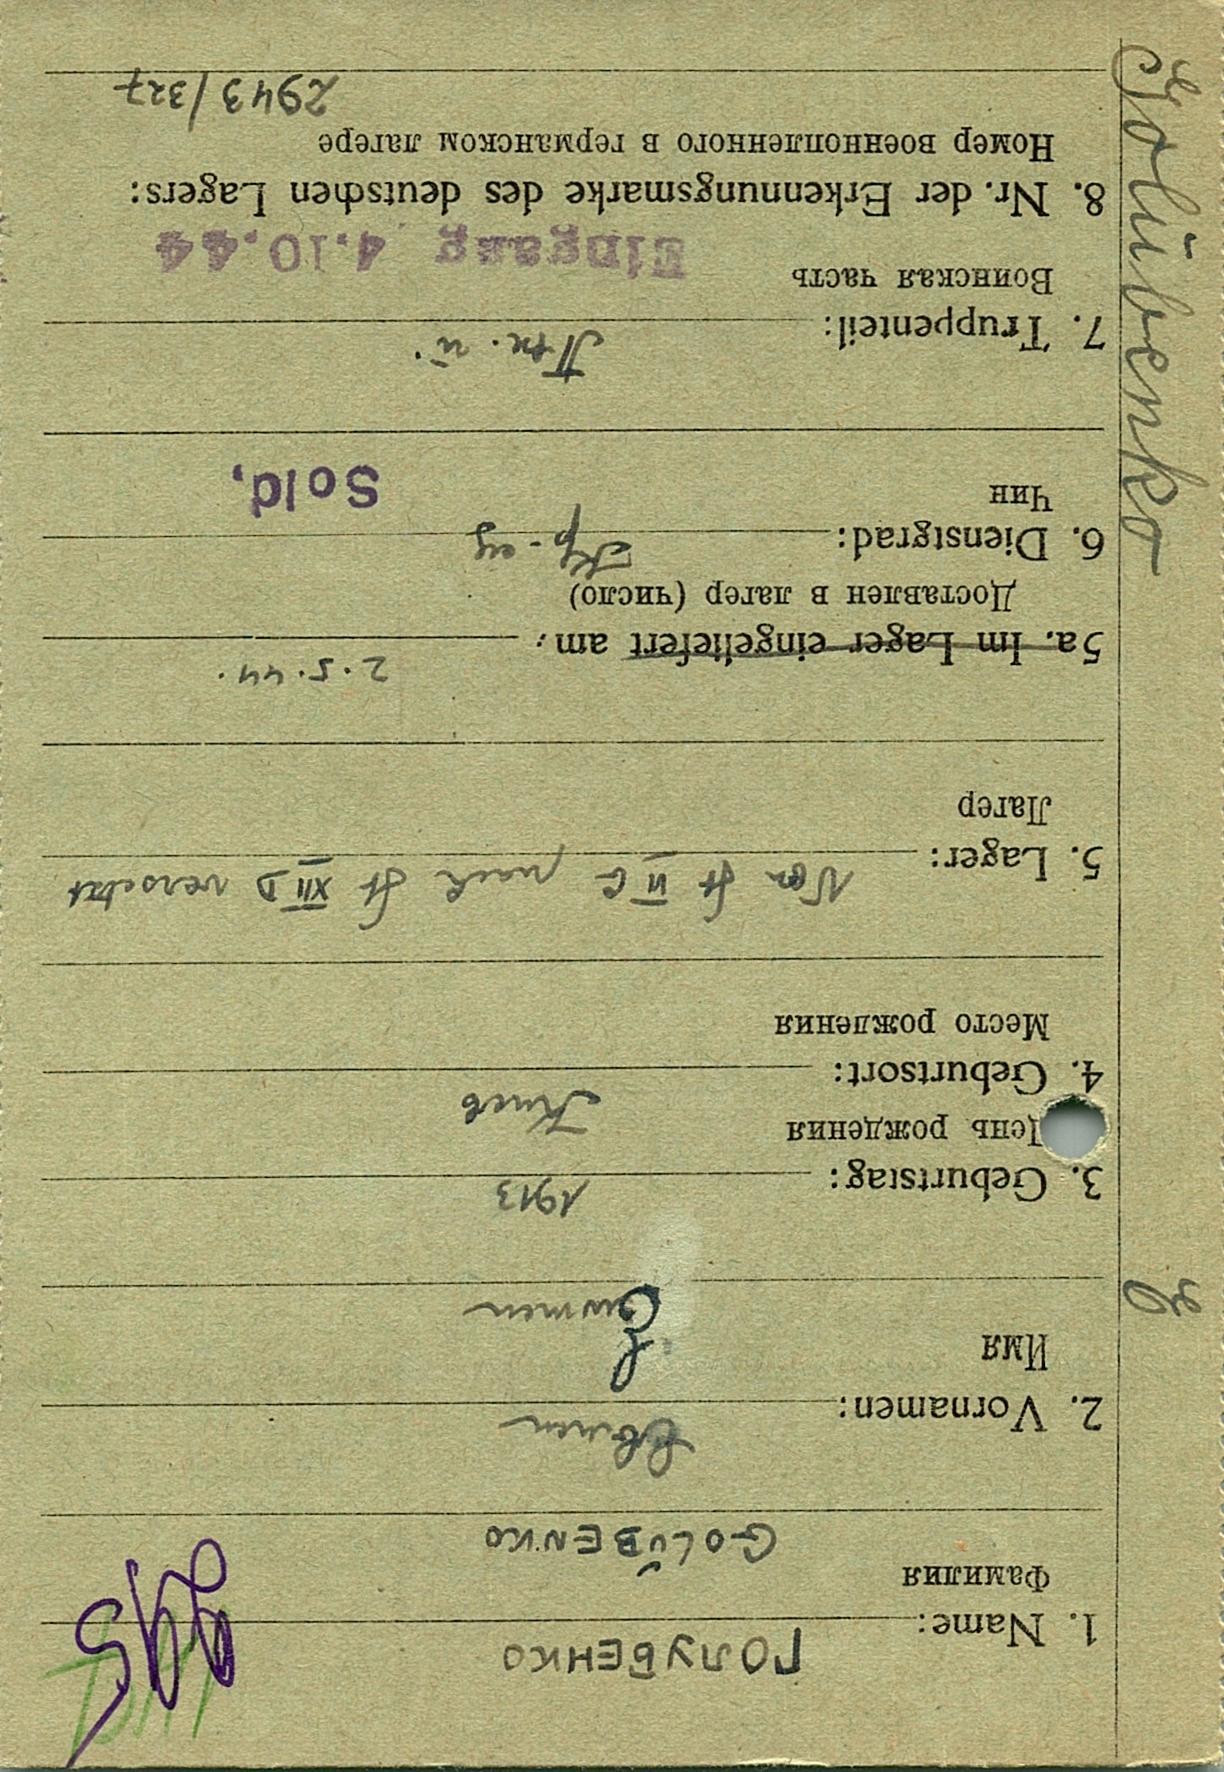 ГОЛУБЕНКО
1. Name:
Фамилия
GOLŪBENKO
2. Vornamen:
Имя
3. Geburtstag: 1913
День рождения
4. Geburtsort: Киев
Место рождения
5. Lager: Von St VI C nach St XII D versetzt
Лагер
2.5.44.
5a. Im Lager eingeliefert am:
Доставлен в лагер (число)
6. Dienstgrad: Кр-ец
Чин
Sold.
7. Truppenteil:
Воинская часть
Eingang 4.10.44
8. Nr. der Erkennungsmarke des deutschen Lagers:
Номер военнопленного в германском лагере
2943/327
Golūbenko